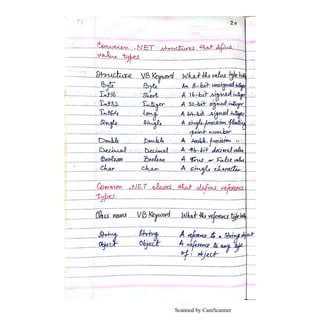 20
Common .NET structures that define
value types
Structure VB Keyword What the value type holds
Byte Byte An 8-bit unsigned integer
Int16 Short A 16-bit signed integer
Int32 Integer A 32-bit signed integer
Int64 Long A 64-bit signed integer
Single Single A single-precision floating
point number
Double Double A double precision "
Decimal Decimal A 96-bit decimal value
Boolean Boolean A True or False value
Char Char A single character
Common .NET classes that define reference
types
Class name VB Keyword What the reference type holds
String String A reference to a String object
Object Object A reference to any type
of object
Scanned by CamScanner